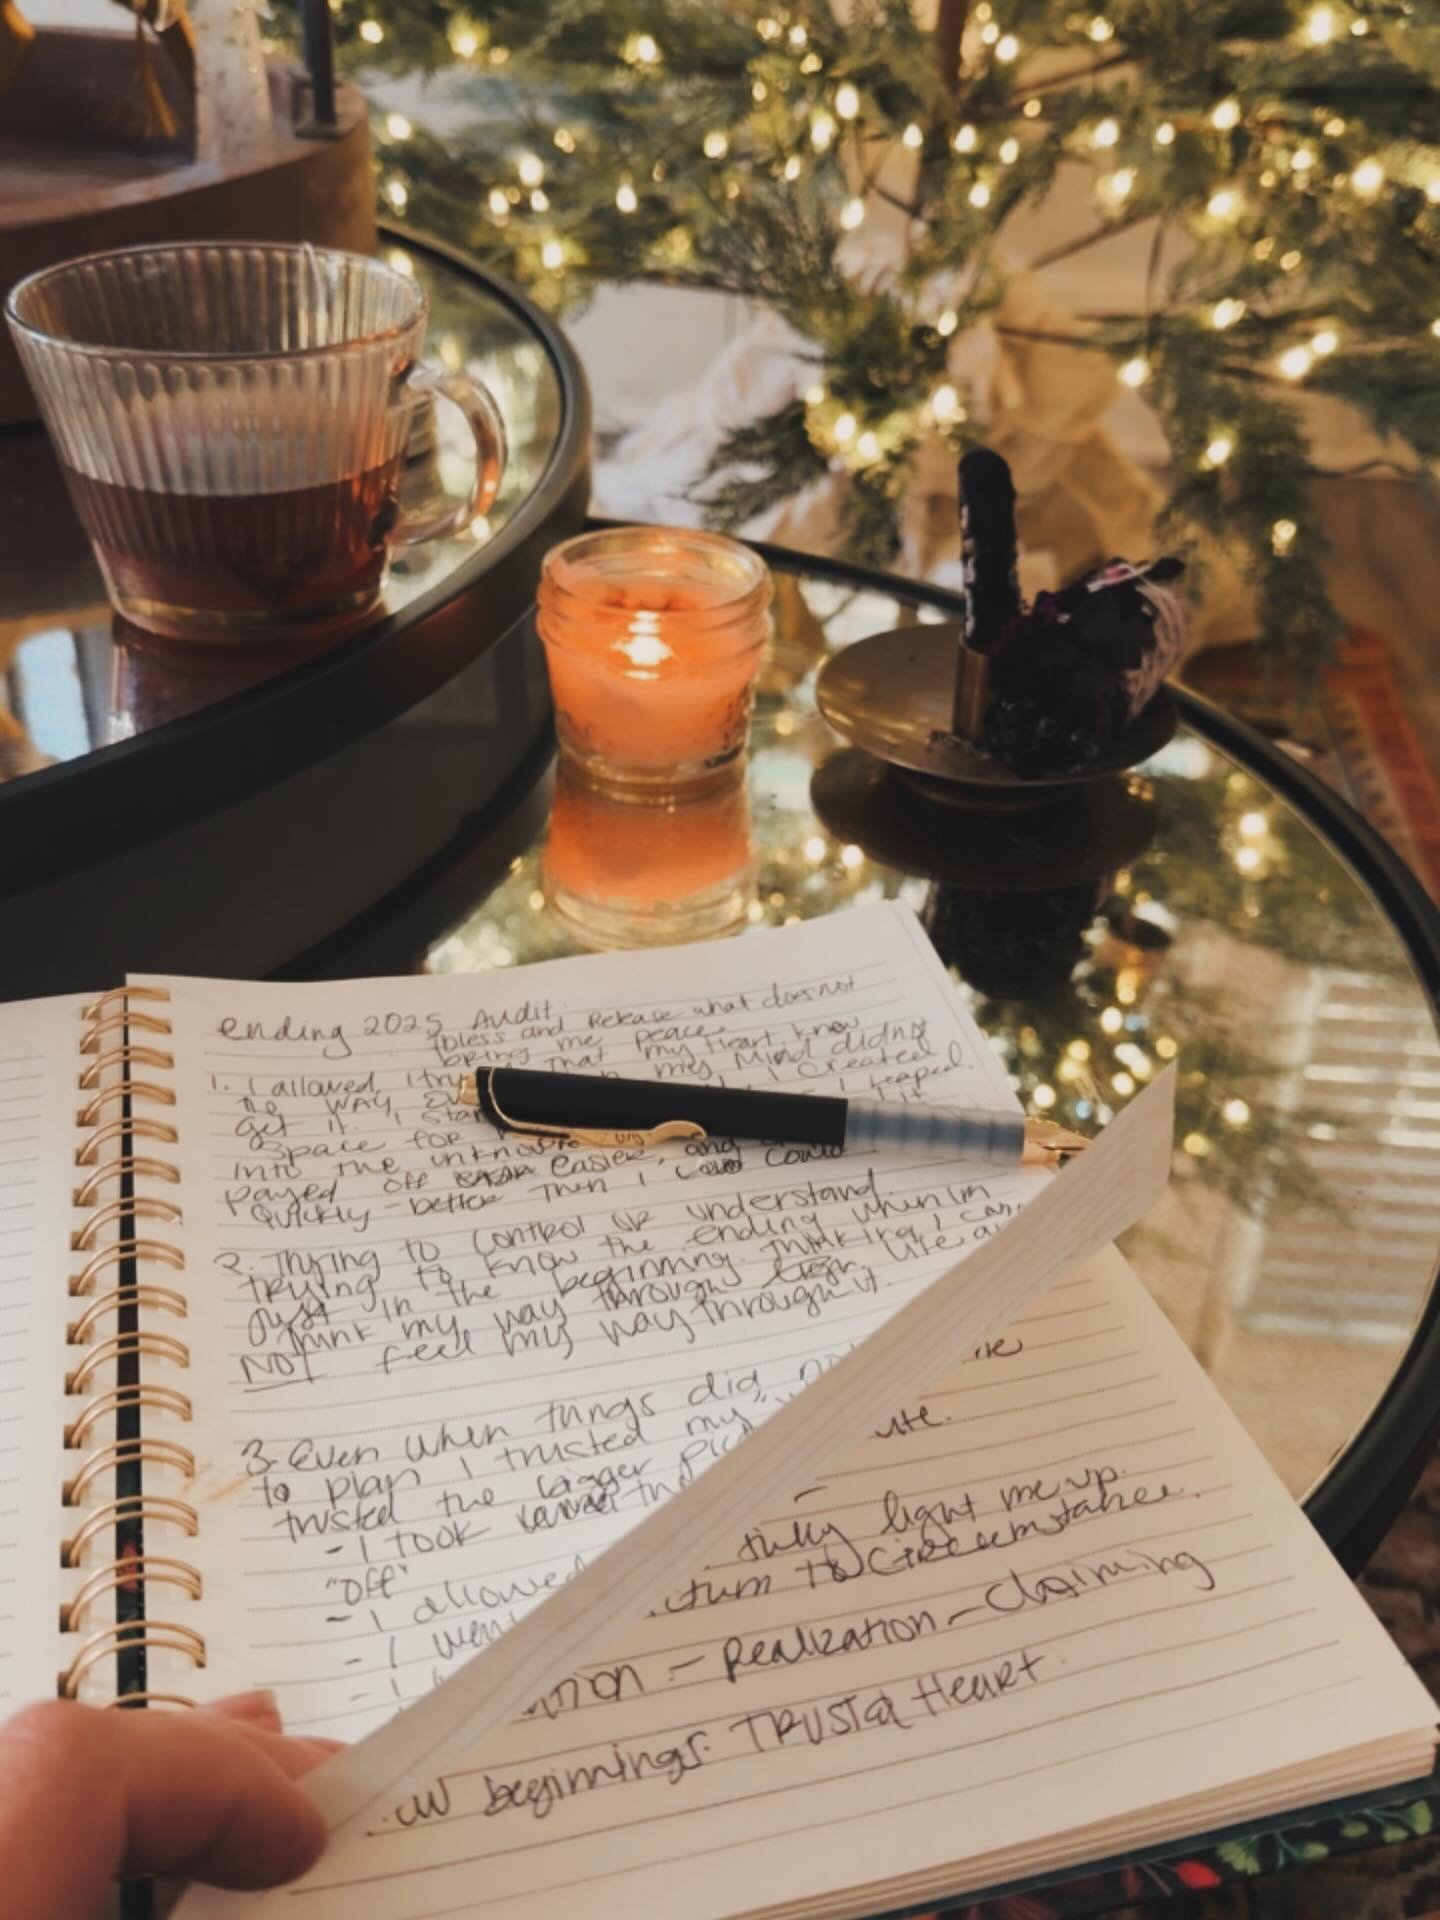 ending 2025 Audit.
bless and Release what does not
bring me peace.
1. I allowed, I tru that my Heart know
the way my Mind didn't
get it. I star I created
space for I leaped
into the unknown it
payed off easier, and
quickly - better then I could
2. Trying to control or understand.
trying to know the ending when I'm
Just in the beginning. Thinking I can
think my way through life a
NOT feel my way through it.
3. Even when things did no
to plan I trusted my "
trusted the bigger pic
- I took the
"off"
- I allowed
- I went
- I
ute.
fully light me up.
turn to circumstance.
ution - Realization - Claiming
ew beginnings. TRUST Heart.